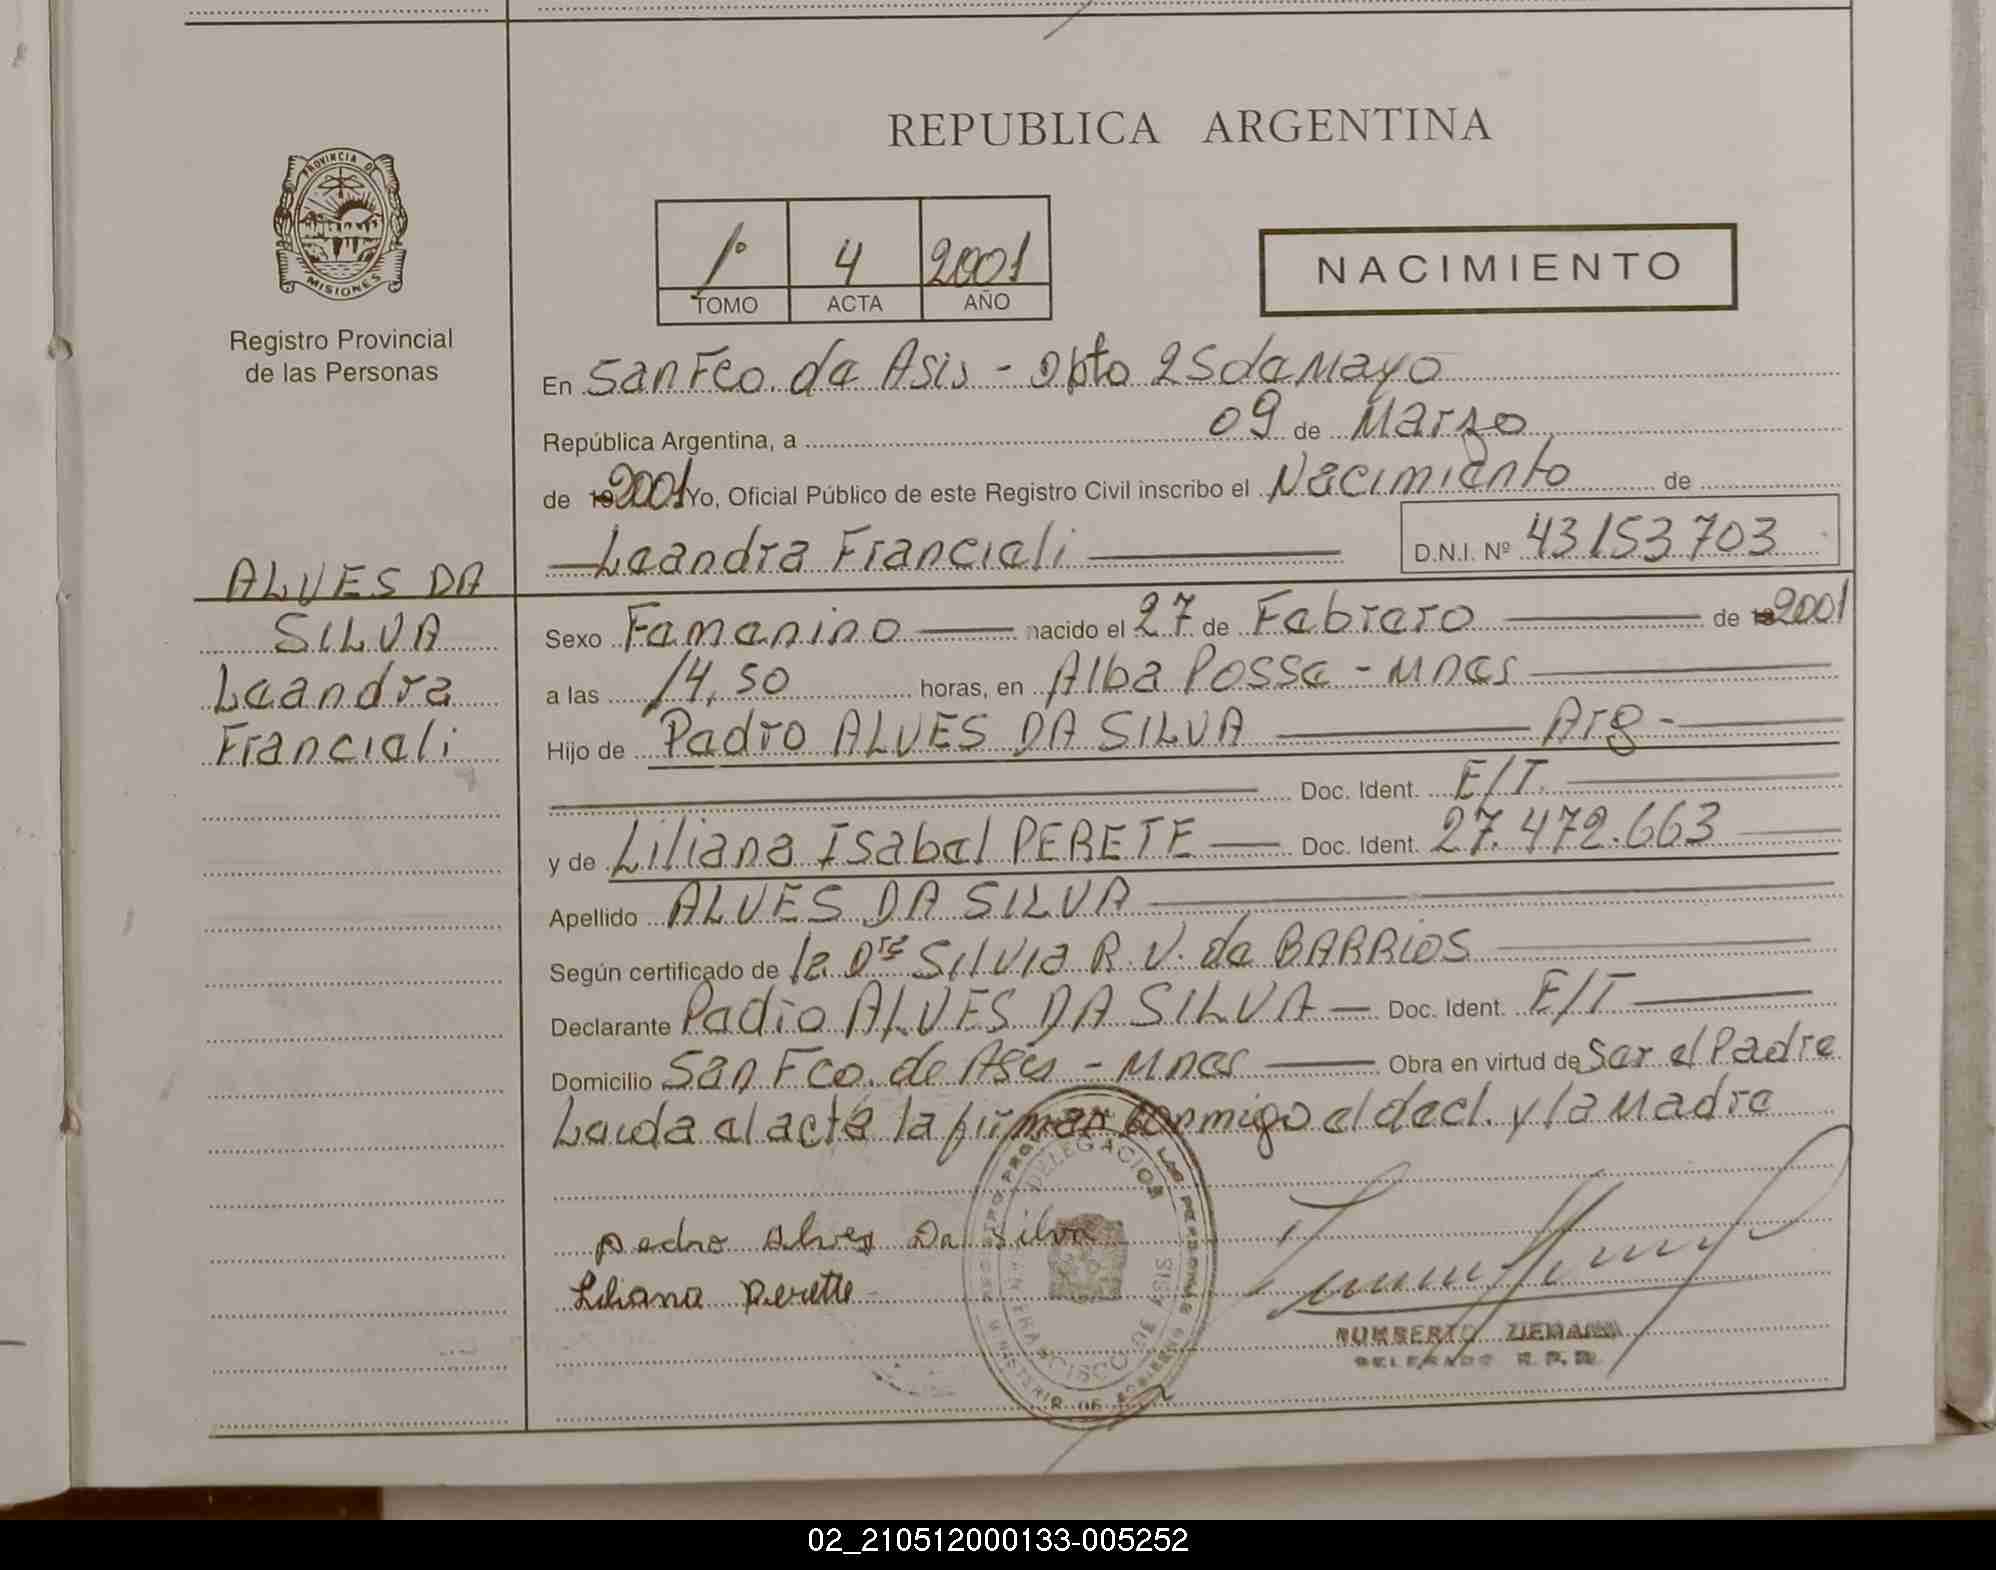 REPUBLICA ARGENTINA
PROVINCIA DE
MISIONES
Registro Provincial
de las Personas
1º 4 2001
TOMO ACTA AÑO
NACIMIENTO
En San Fco. de Asis - Dpto 25 de Mayo
República Argentina, a 09 de Marzo
de 19 2001 Yo, Oficial Público de este Registro Civil inscribo el Nacimiento de
Leandra Francieli D.N.I. Nº 43153703
ALVES DA
SILVA
Leandra
Francieli
Sexo Femenino nacido el 27 de Febrero de 19 2001
a las 14,50 horas, en Alba Posse - Mnes
Hijo de Pedro ALVES DA SILVA Arg-
Doc. Ident. E/T.
y de Liliana Isabel PERETE Doc. Ident. 27.472.663
Apellido ALVES DA SILVA
Según certificado de la Dra SILVIA R. V. de BARRIOS
Declarante Pedro ALVES DA SILVA Doc. Ident. E/T
Domicilio San Fco. de Asis - Mnes Obra en virtud de Ser el Padre
Leida el acta la firman conmigo el decl. y la Madre
Pedro Alves Da Silva
Liliana Perette
DELEGACION
FRANCISCO DE ASIS
HUMBERTO ZIEMANN
DELEGADO R.P.P.
02_210512000133-005252